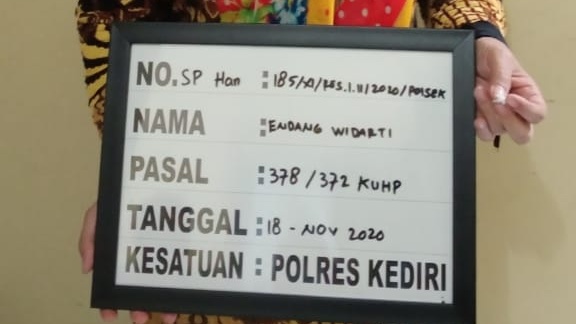 NO. SP Han : 185/XI/RES.1.11/2020/Polsek
NAMA : ENDANG WIDARTI
PASAL : 378 / 372 KUHP
TANGGAL : 18 - NOV 2020
KESATUAN : POLRES KEDIRI